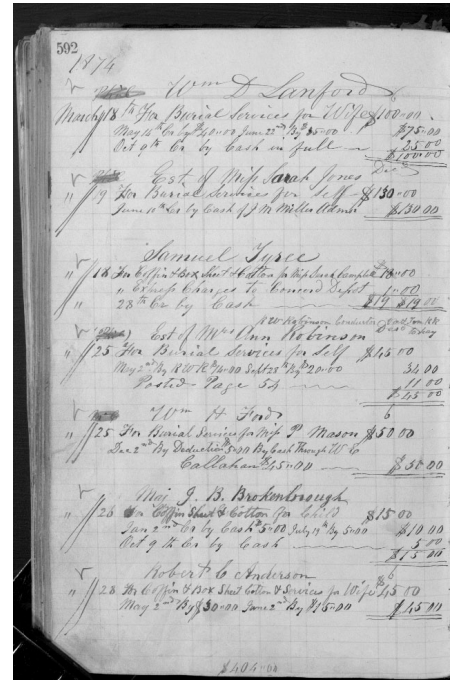 592
1874
Wm D Lanford
March 18th For Burial Services for Wife $100-00
May 16th Cr by $40-00 June 22nd By $35-00 $75-00
Oct 9th Cr by Cash in full 25 00
$100-00
Est of Miss Sarah Jones
" 19 For Burial services for Self $130-00
June 10th Cr by Cash of J M Miller Admr $130 00
Samuel Tyree
" 18 For Coffin & Box Sheet & Cotton for Miss $18-00
" Express Charges to Concord Depot 1-00
28th Cr by Cash $19 $19 00
R W Robinson Conductor
Est of Mrs Ann Robinson
" 25 For Burial Services for Self $45-00
May 2nd By R W R $14-00 Sept 28th By $20-00 34 00
Posted Page 54 11 00
$45-00
Wm H Ford
" 25 For Burial Services for Miss P Mason $50 00
Dec 2nd By Deduction $5-00 By Cash Through W C
Callahan $45-00 $50 00
Maj J. B. Brokenbrough
" 26 For Coffin Sheet & Cotton for Child $15 00
Jan 2nd Cr by Cash $5-00 July 19th By 5-00 $10.00
Oct 9th Cr by Cash 5 00
$15 00
Robert C Anderson
" 28 For Coffin & Box Sheet Cotton & Services for Wife $45 00
May 2nd By $30-00 June 2nd By $15-00 $45 00
$404-00